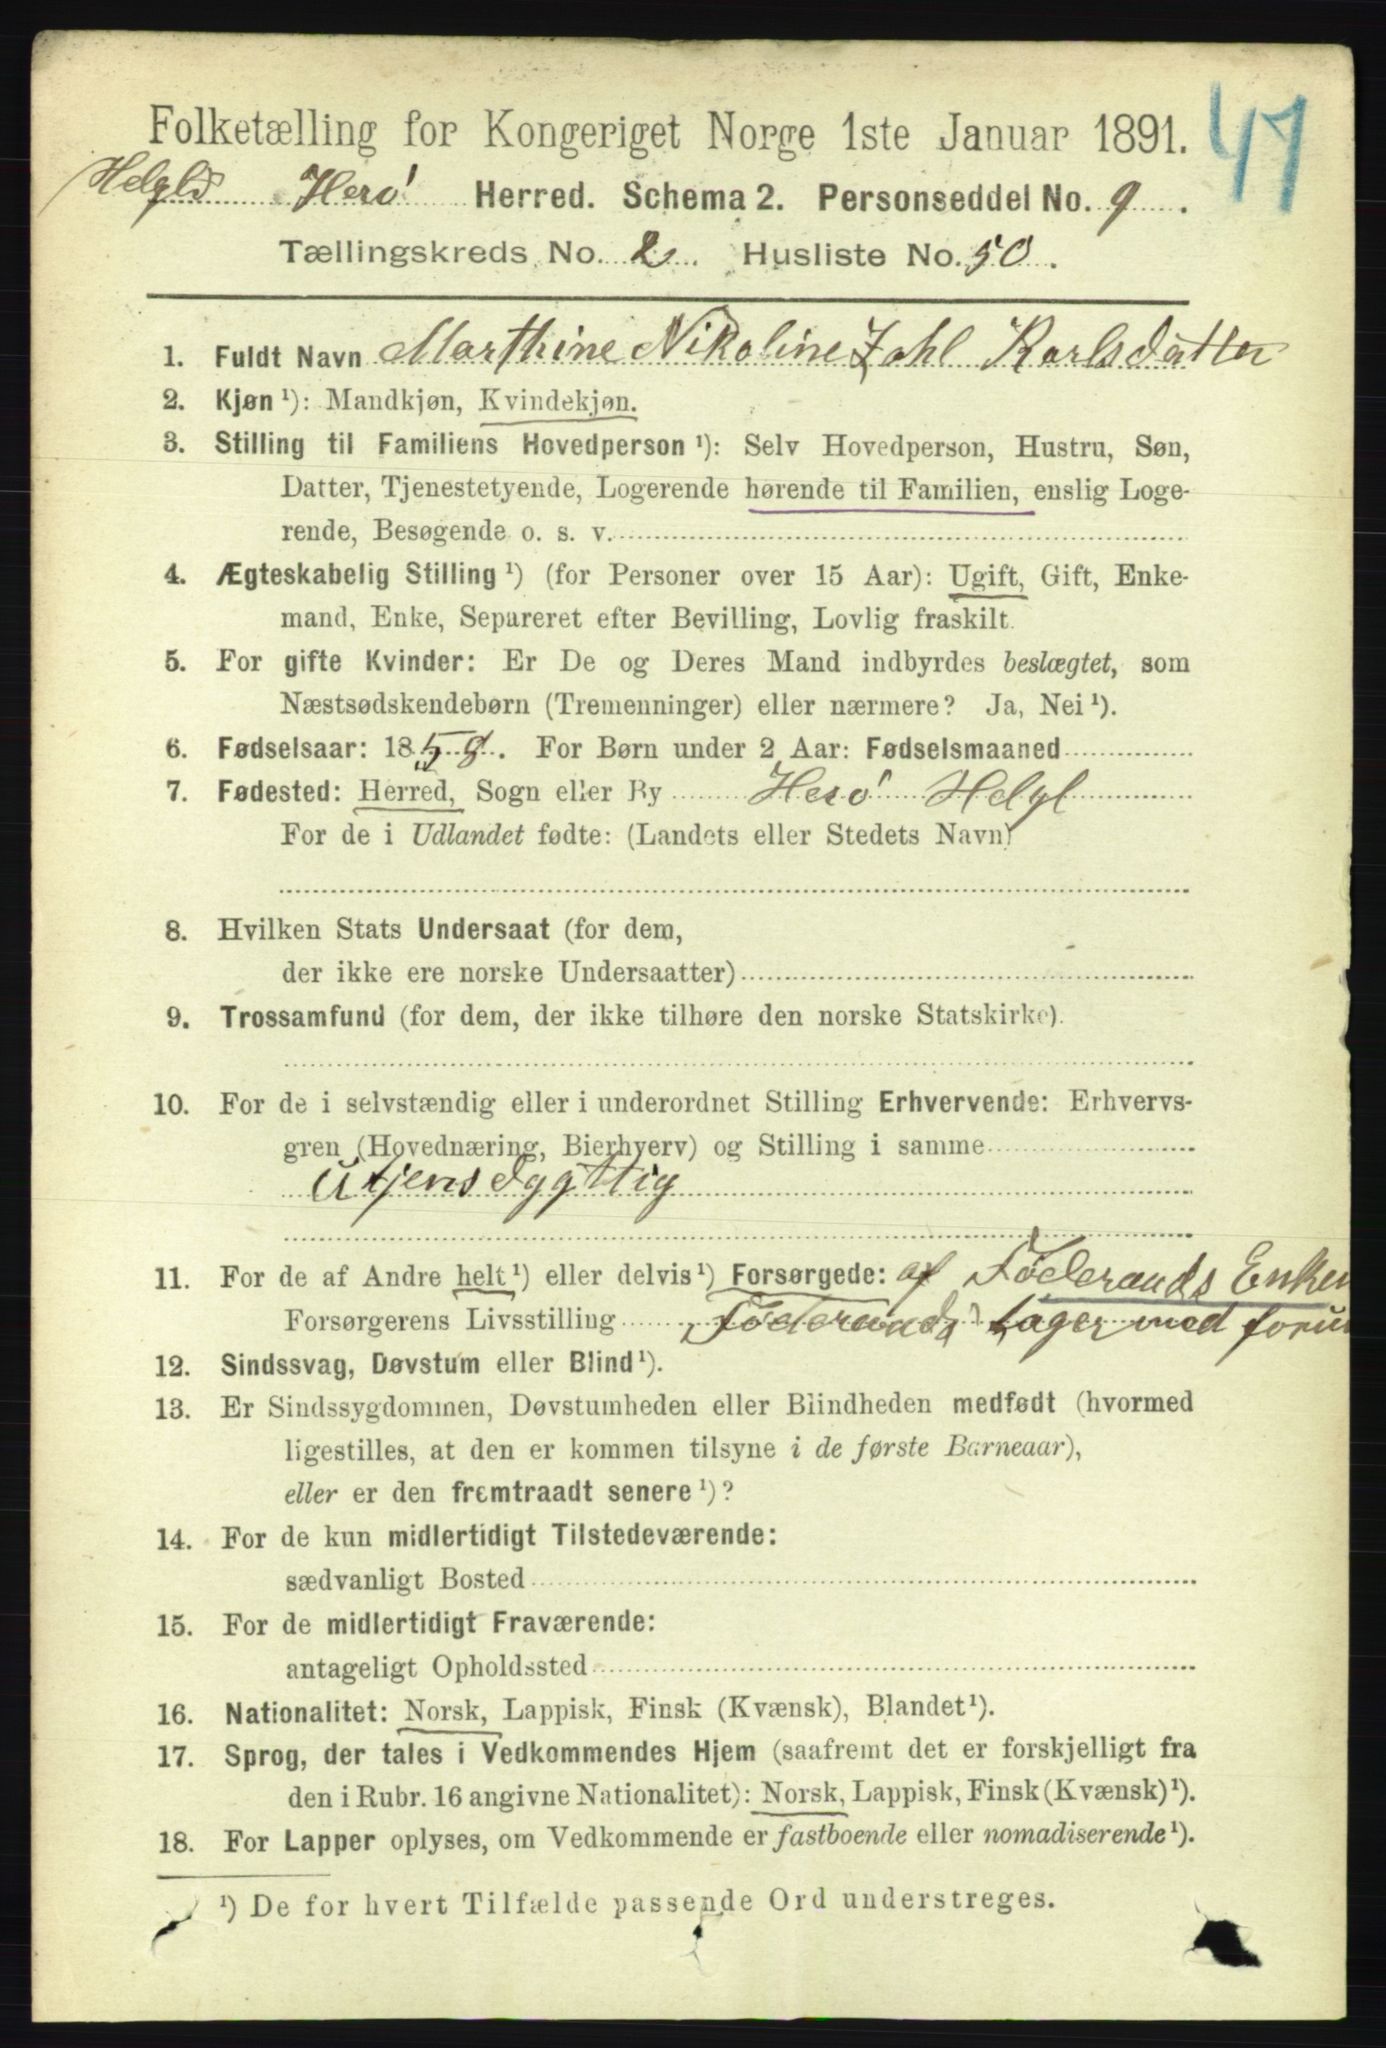 Folketælling for Kongeriget Norge 1ste Januar 1891. 47
Helgld Herø Herred. Schema 2. Personseddel No. 9.
Tællingskreds No. 2. Husliste No. 50.
1. Fuldt Navn Marthine Nikoline Zahl Karlsdatter
2. Kjøn ¹): Mandkjøn, Kvindekjøn.
3. Stilling til Familiens Hovedperson ¹): Selv Hovedperson, Hustru, Søn,
Datter, Tjenestetyende, Logerende hørende til Familien, enslig Loge-
rende, Besøgende o. s. v.
4. Ægteskabelig Stilling ¹) (for Personer over 15 Aar): Ugift, Gift, Enke-
mand, Enke, Separeret efter Bevilling, Lovlig fraskilt.
5. For gifte Kvinder: Er De og Deres Mand indbyrdes beslægtet, som
Næstsødskendebørn (Tremenninger) eller nærmere? Ja, Nei ¹).
6. Fødselsaar: 1858. For Børn under 2 Aar: Fødselsmaaned
7. Fødested: Herred, Sogn eller By Herø Helgl
For de i Udlandet fødte: (Landets eller Stedets Navn)
8. Hvilken Stats Undersaat (for dem,
der ikke ere norske Undersaatter)
9. Trossamfund (for dem, der ikke tilhøre den norske Statskirke).
10. For de i selvstændig eller i underordnet Stilling Erhvervende: Erhvervs-
gren (Hovednæring, Bierhverv) og Stilling i samme
Utjensdygttig
11. For de af Andre helt ¹) eller delvis ¹) Forsørgede: af Föderaads Enken
Forsørgerens Livsstilling Föderaads tager med
12. Sindssvag, Døvstum eller Blind ¹).
13. Er Sindssygdommen, Døvstumheden eller Blindheden medfødt (hvormed
ligestilles, at den er kommen tilsyne i de første Barneaar),
eller er den fremtraadt senere ¹)?
14. For de kun midlertidigt Tilstedeværende:
sædvanligt Bosted
15. For de midlertidigt Fraværende:
antageligt Opholdssted
16. Nationalitet: Norsk, Lappisk, Finsk (Kvænsk), Blandet ¹).
17. Sprog, der tales i Vedkommendes Hjem (saafremt det er forskjelligt fra
den i Rubr. 16 angivne Nationalitet): Norsk, Lappisk, Finsk (Kvænsk) ¹).
18. For Lapper oplyses, om Vedkommende er fastboende eller nomadiserende ¹).
¹) De for hvert Tilfælde passende Ord understreges.